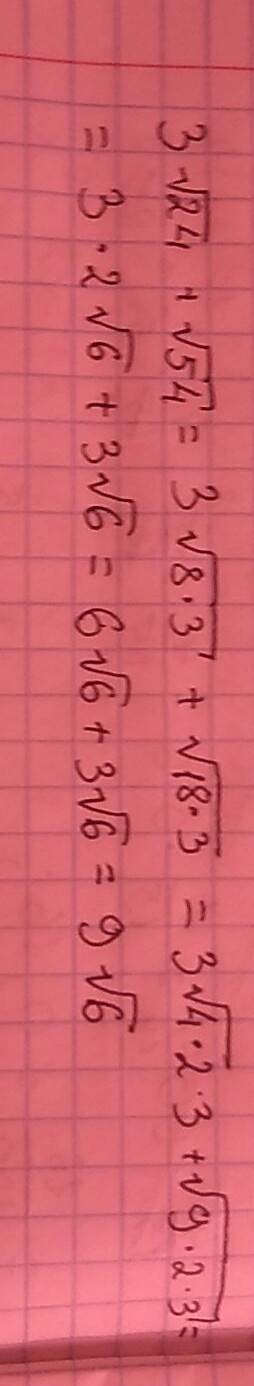 3√24 + √54 = 3√8·3 + √18·3 = 3√4·2·3 + √9·2·3 =
= 3·2√6 + 3√6 = 6√6 + 3√6 = 9√6